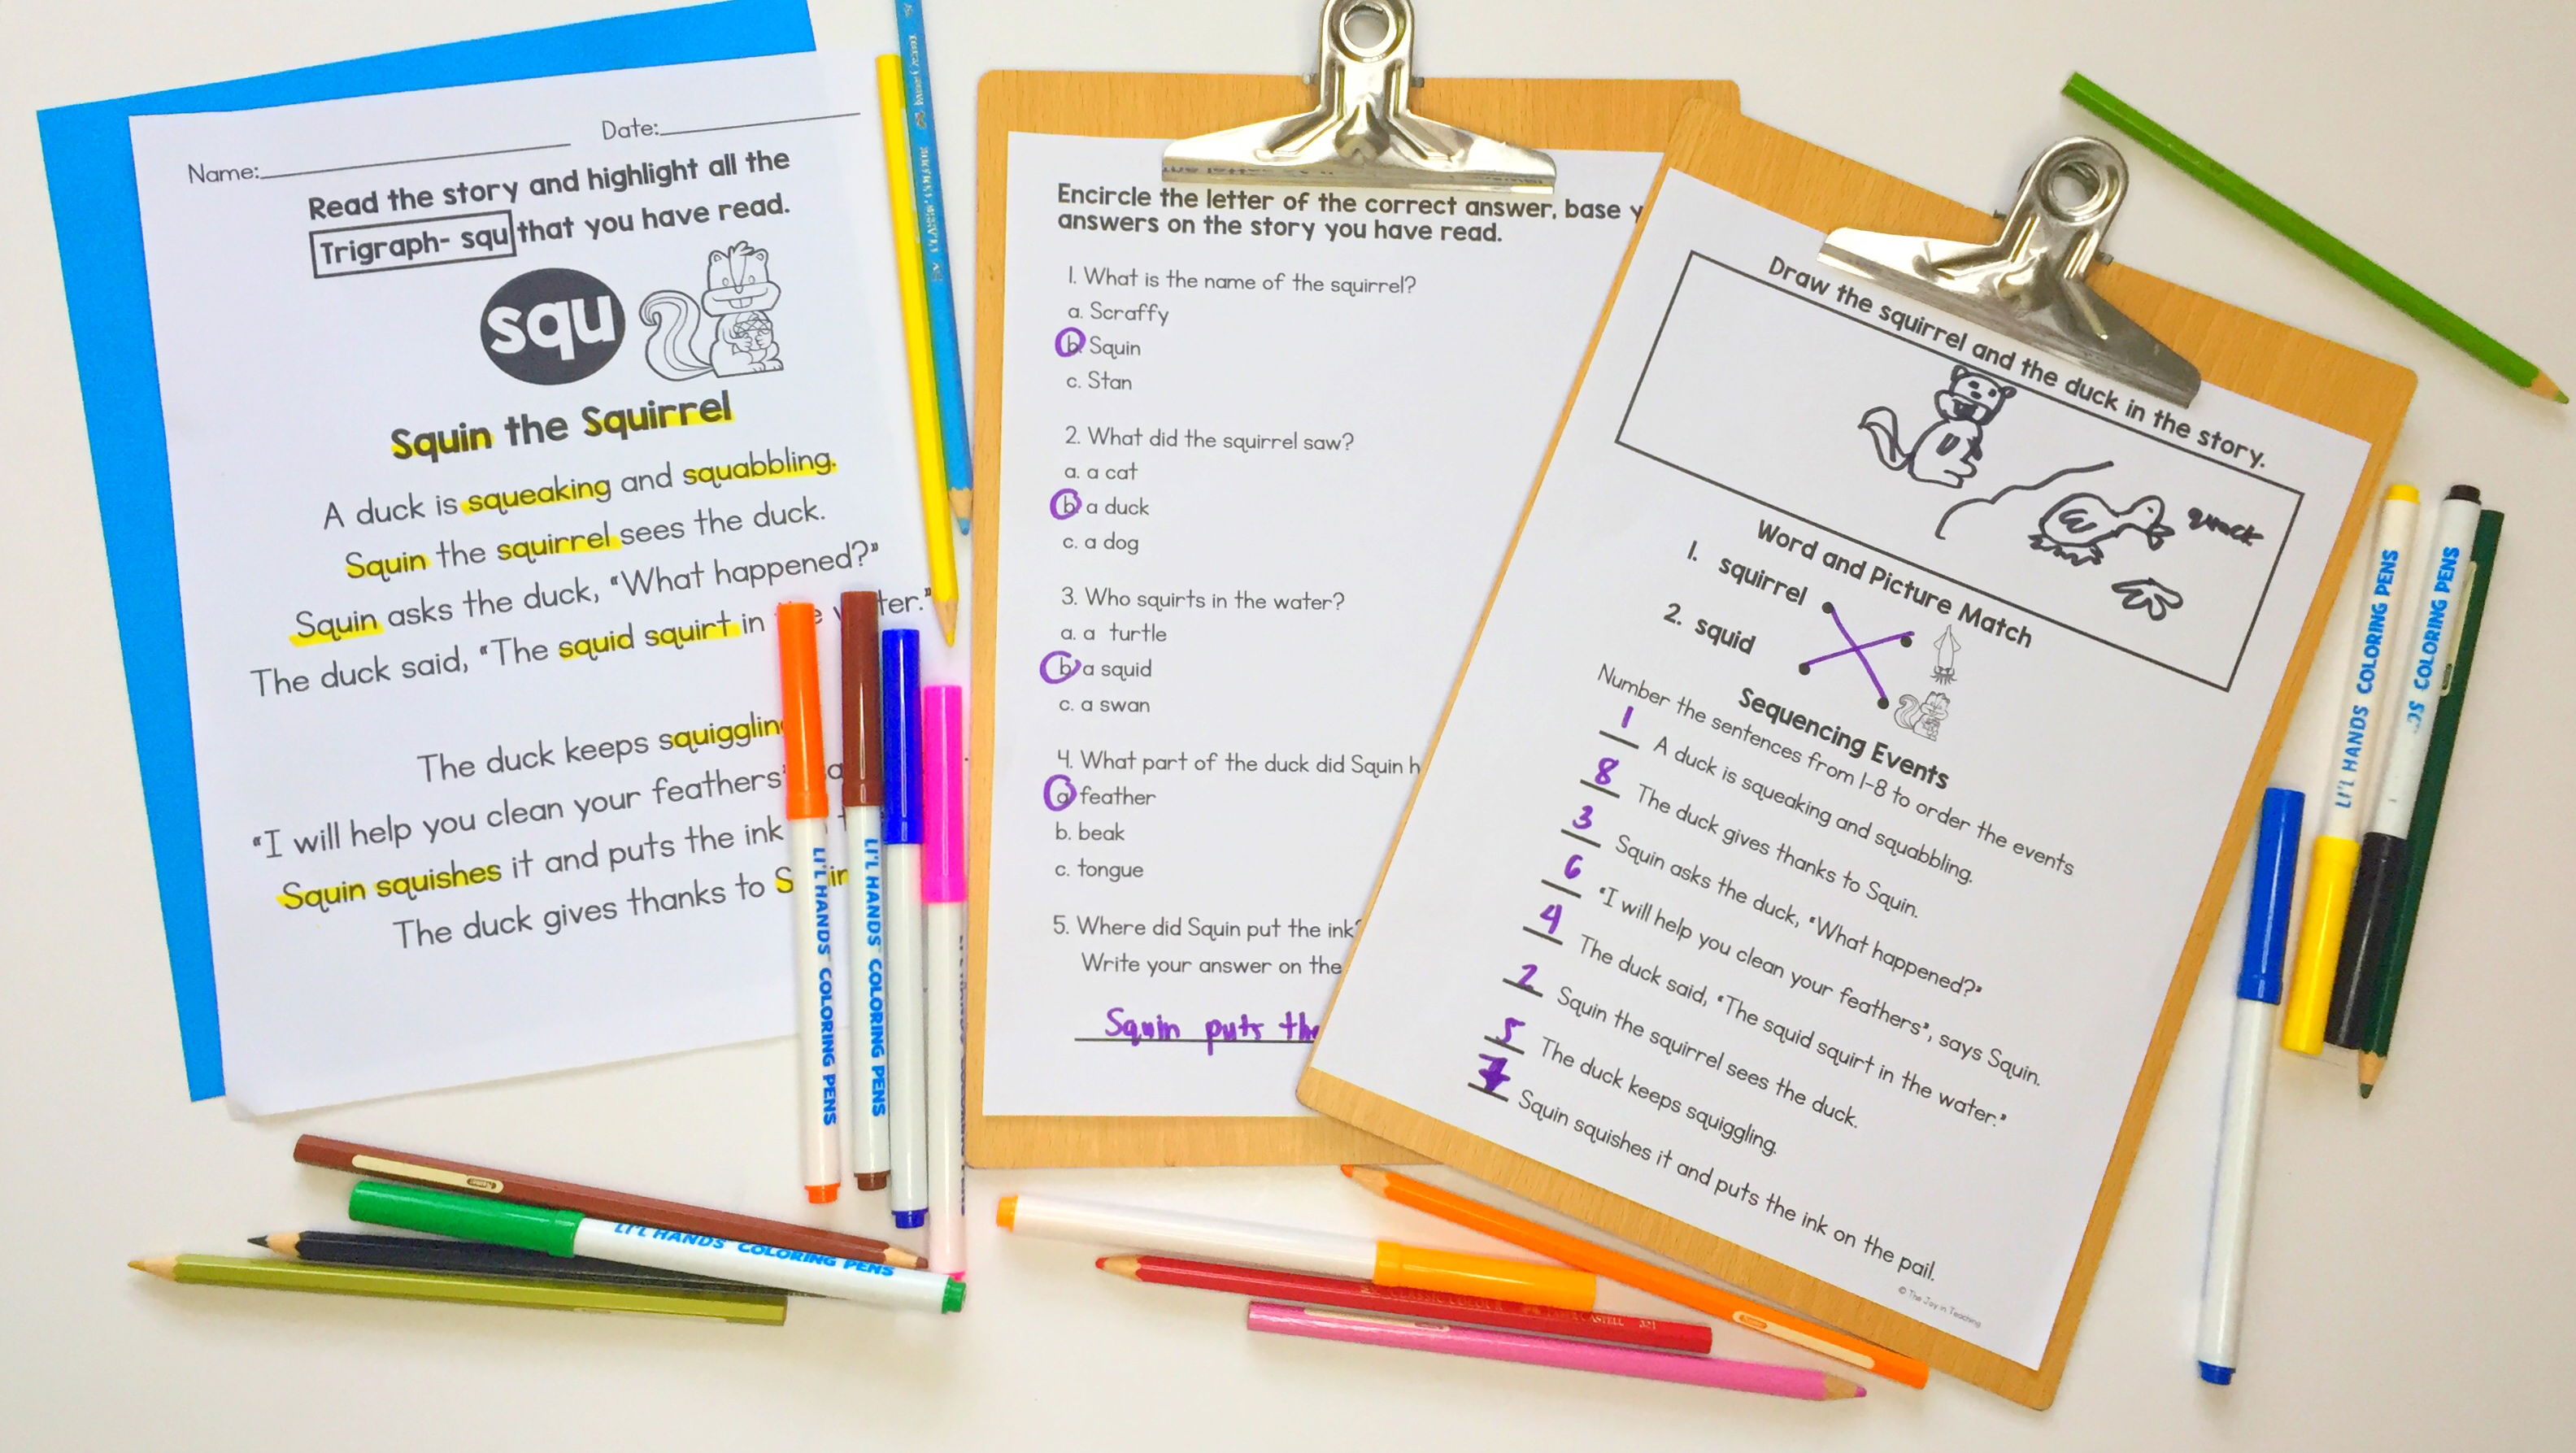 Name:
Date:
Read the story and highlight all the
Trigraph- squ that you have read.
squ
Squin the Squirrel
A duck is squeaking and squabbling.
Squin the squirrel sees the duck.
Squin asks the duck, “What happened?”
The duck said, “The squid squirt in
The duck keeps
“I will help you clean your feathers”
Squin squishes it and puts the ink
The duck gives thanks to
Encircle the letter of the correct answer, base
answers on the story you have read.
1. What is the name of the squirrel?
a. Scraffy
b. Squin
c. Stan
2. What did the squirrel saw?
a. a cat
b. a duck
c. a dog
3. Who squirts in the water?
a. a turtle
b. a squid
c. a swan
4. What part of the duck did Squin
a. feather
b. beak
c. tongue
5. Where did Squin put the ink?
Write your answer on the
Squin puts the
Draw the squirrel and the duck in the story.
quack
Word and Picture Match
1. squirrel
2. squid
Sequencing Events
Number the sentences from 1-8 to order the events
1 A duck is squeaking and squabbling.
8 The duck gives thanks to Squin.
3 Squin asks the duck, “What happened?”
6 “I will help you clean your feathers”, says Squin.
4 The duck said, “The squid squirt in the water.”
2 Squin the squirrel sees the duck.
5 The duck keeps squiggling.
7 Squin squishes it and puts the ink on the pail.
© The Joy in Teaching
LI'L HANDS COLORING PENS
LI'L HANDS COLORING PENS
LI'L HANDS COLORING PENS
LI'L HANDS COLORING PENS
COLORING PENS